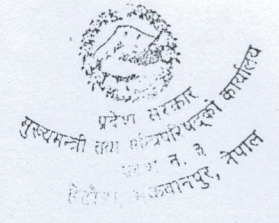 प्रदेश सरकार
मुख्यमन्त्री तथा मन्त्रिपरिषद्को कार्यालय
प्रदेश न. ३
हेटौंडा, मकवानपुर, नेपाल